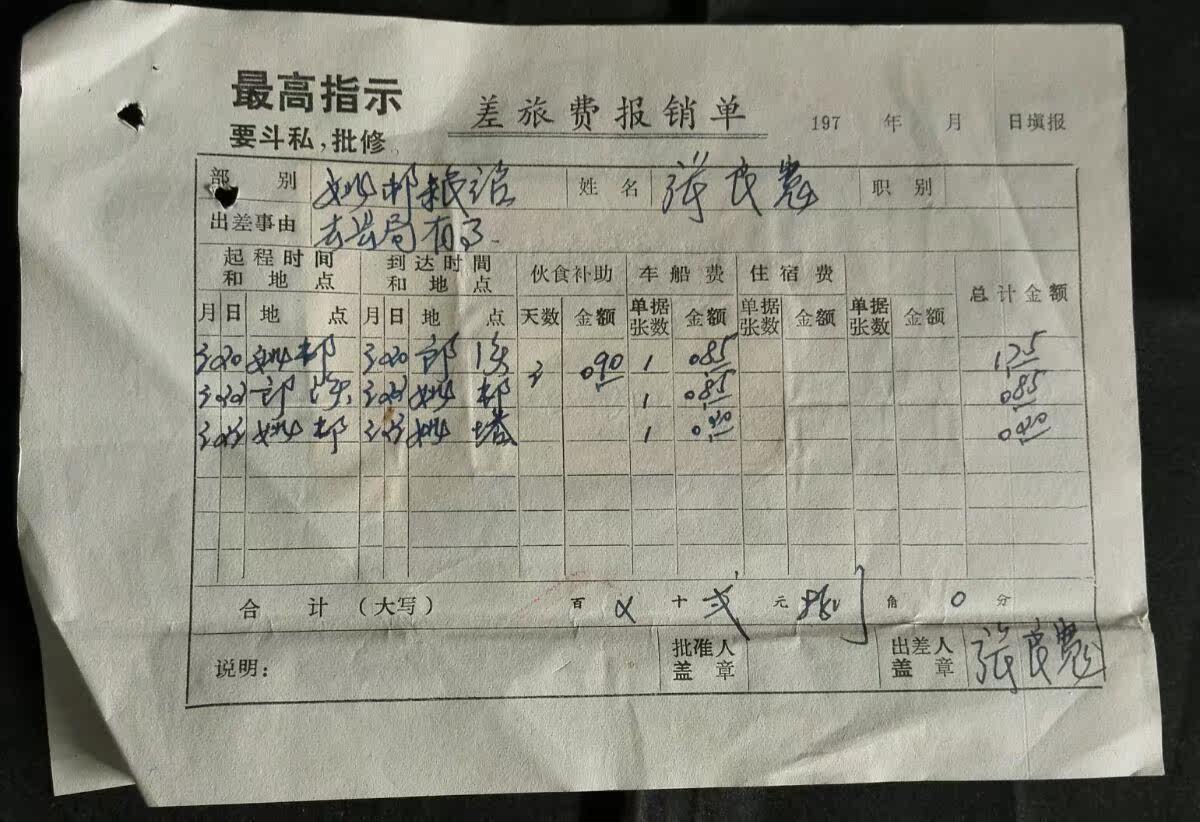 最高指示
要斗私，批修。
差旅费报销单
197 年 月 日填报
部 别 姚村粮站 姓 名 张良 职 别
出差事由 去县局
起程时间和地点 到达时间和地点 伙食补助 车船费 住宿费 总计金额
月 日 地 点 月 日 地 点 天数 金额 单据张数 金额 单据张数 金额 单据张数 金额
姚村 郎溪 3 0.90 1 0.85 1.75
郎溪 姚村 1 0.85 0.85
姚村 姚塔 1
合 计 （大写） 百 十 元 角 0 分
说明： 批准人盖章 出差人盖章 张良